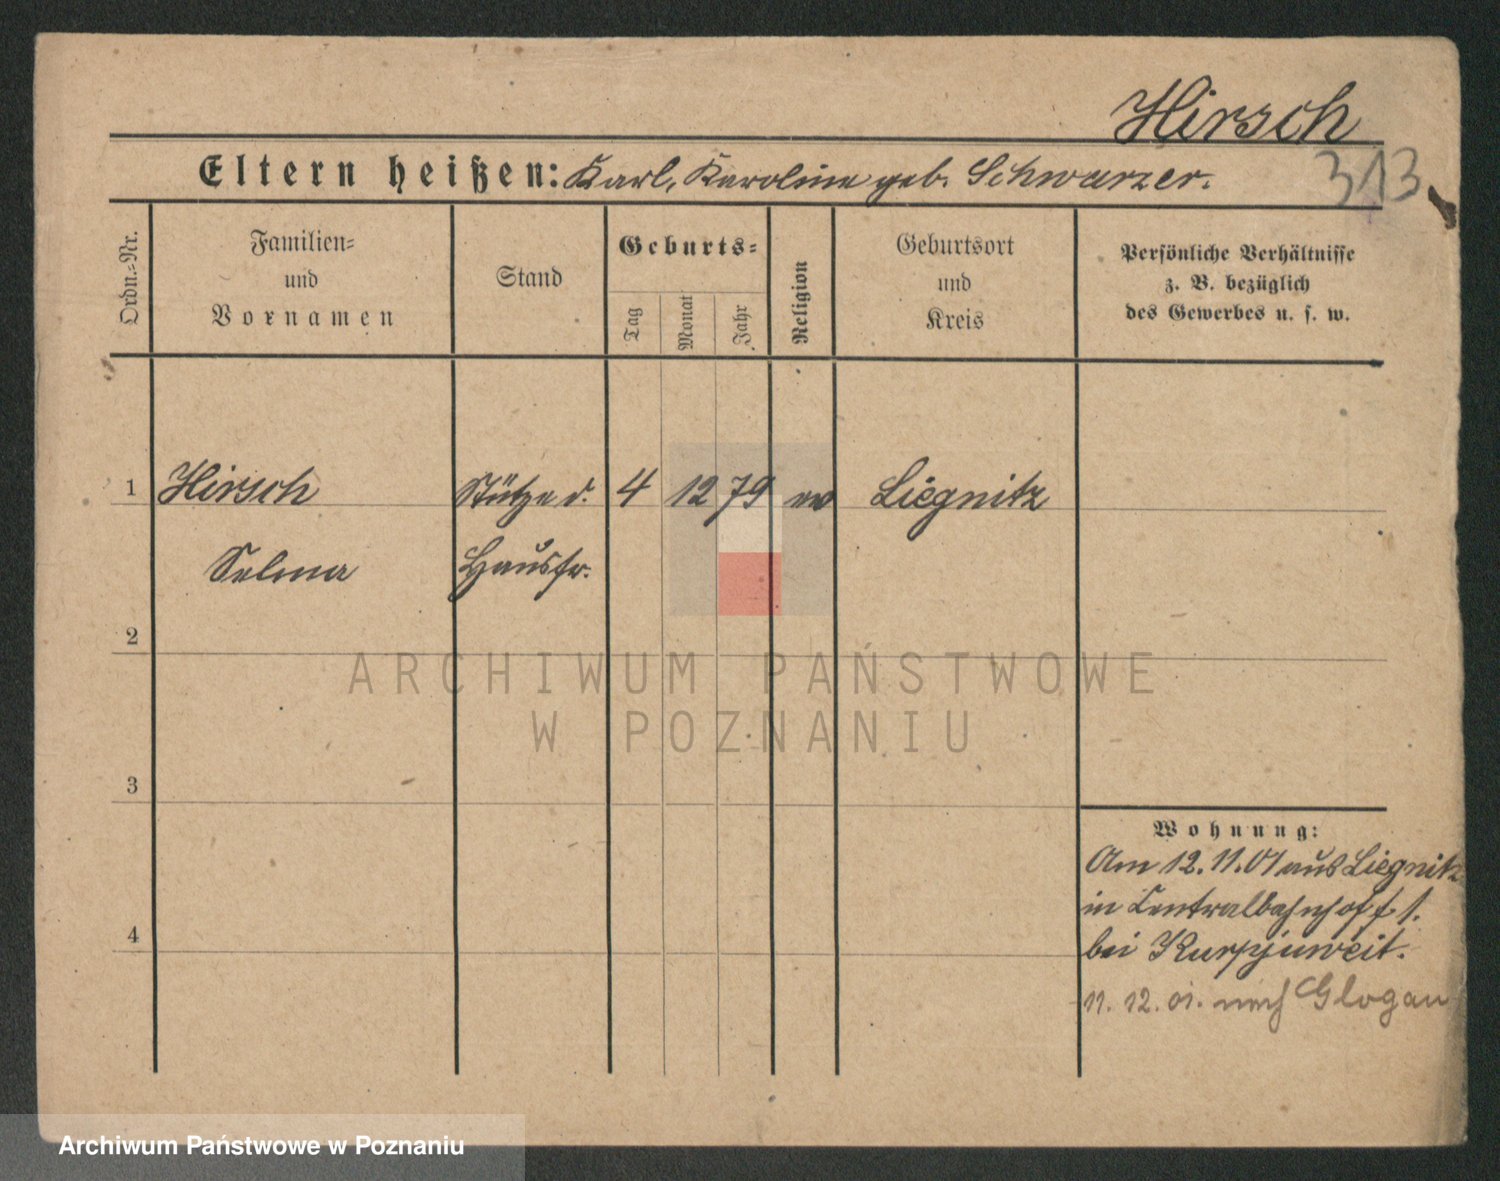 Hirsch
313
Eltern heißen: Karl, Karoline geb. Schwarzer.
Ordn.-Nr.
Familien-
und
Vornamen
Stand
Geburts-
Tag
Monat
Jahr
Religion
Geburtsort
und
Kreis
Persönliche Verhältnisse
z. B. bezüglich
des Gewerbes u. s. w.
1 Hirsch Stütze d. 4 12 79 ev Liegnitz
Selma Hausfr.
2
ARCHIWUM PAŃSTWOWE
W POZNANIU
3
Wohnung:
Am 12.11.01 aus Liegnitz
in Centralbahnhof f 1.
4
bei Kurpjuweit.
11. 12. 01. nach Glogau
Archiwum Państwowe w Poznaniu